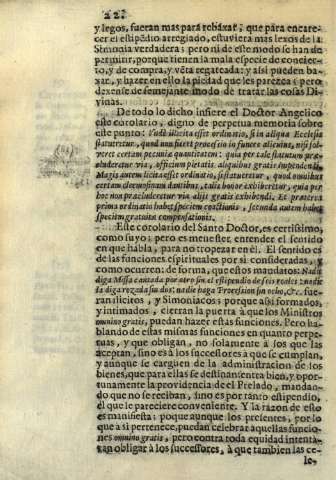 22?
y legos, fueran mas pará rebaxar; que para encare-
cer el estipẽdio arreglado, estuviera mas lexos de la
Simonia verdadera; pero ni de este modo se han de
permitir, porque tienen la mala especie de concier-
to, y de compra, y vẽta regateada; y assi pueden ba-
xar, y hazer en ello la piedad que les parezca; pero
dexense de semejante modo de tratar las cosas Di-
vinas.
De todo lo dicho infiere el Doctor Angelico
este corolario, digno de perpetua memoria sobre
este punto: Vndè illicita esset ordinatio, si in aliqua Ecclesia
statueretur, quod non fieret processio in funere alicuius, nisi sol-
veret certam pecuniæ quantitatem: quia per tale statutum præ-
cluderetur via, officium pietatis aliquibus gratis impendendi.
Magis autem licita esset ordinatio, si statueretur, quod omnibus
certam eleemosinam dantibus, talis honor exhiberetur, quia per
hoc non præcluderetur via aliis gratis exhibendi. Et præterea
prima ordinatio habet speciem exactionis, secunda autem habet
speciem gratuitæ compensationis.
Este corolario del Santo Doctor, es certissimo,
como suyo: pero es menester, entender el sentido
en que habla, para no tropezar en èl. El sentido es
de las funciones espirituales por si consideradas, y
como ocurren: de forma, que estos mandatos: Nadie
diga Missa cantada por otro sin el estipendio de seis reales: nadie
la diga rezada sin dos: nadie haga Procession sin ocho, &c. fue-
ran ilicitos, y Simoniacos: porque assi formados,
y intimados, cierran la puerta à que los Ministros
omnino gratis, puedan hazer estas funciones. Pero ha-
blando de estas mismas funciones en quanto perpe-
tuas, y que obligan, no solamente à los que las
aceptan, sino es à los successores à que se cumplan,
y aunque se carguen de la administracion de los
bienes, que para ellas se destinan sentra bien, y opor-
tunamente la providencia de el Prelado, mandan-
do que no se reciban, sino es por tanto estipendio,
èl que le pareciere conveniente. Y la razon de esto
es manifiesta: porque aunque los presentes, por lo
que à si pertenece, puedan celebrar aquellas funcio-
nes omnino gratis, pero contra toda equidad intentà-
ran obligar à los successores, à que tambien las ce-
le-